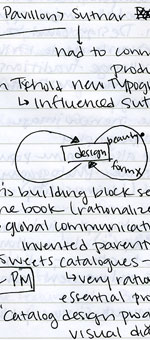 Pavilion) Sutnar
had to conn
produ
Tschold new Typog
↳ Influenced Sut
beauty
design
form
is building block se
he book (rationalize
global communicati
invented parent
sweets catalogues -
PM ↳ very ratio
essential pro
"catalog design prog
visual di